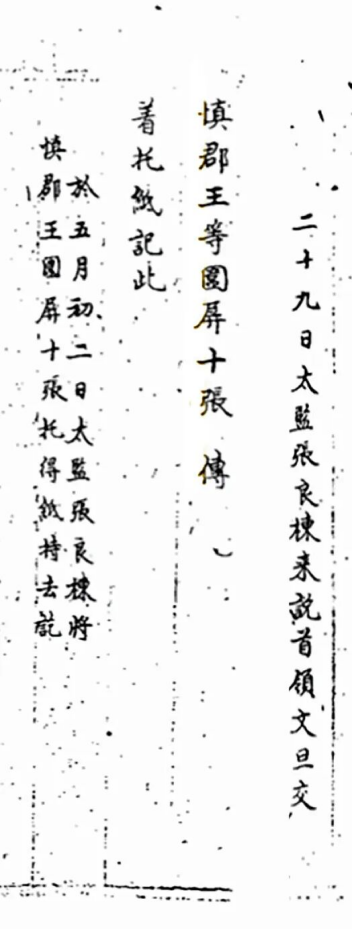 二十九日太監張良棟来說首領文旦交
慎郡王等圍屏十張 傳
着托紙記此
於五月初二日太監張良棟將
慎郡王圍屏十張托得紙持去訖